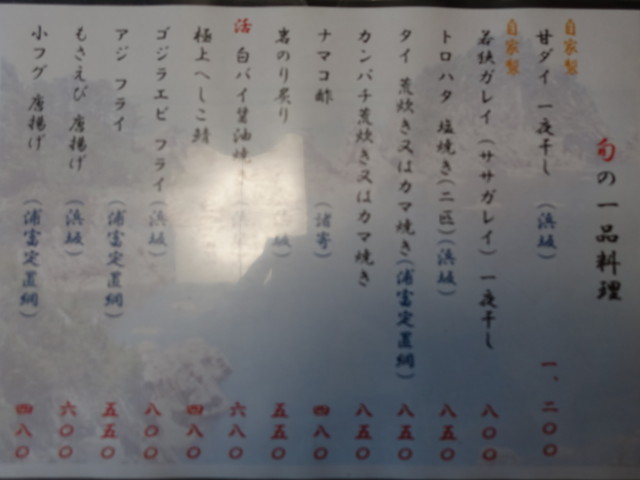 旬の一品料理
自家製
甘ダイ 一夜干し （浜坂） 一、二〇〇
自家製
若狭ガレイ（ササガレイ）一夜干し 八〇〇
トロハタ 塩焼き（二匹）（浜坂） 八五〇
タイ 荒炊き又はカマ焼き（浦富定置網） 八五〇
カンパチ荒炊き又はカマ焼き 八五〇
ナマコ酢 （諸寄） 四八〇
岩のり炙り 坂） 五五〇
活 白バイ醤油焼き 六八〇
極上へしこ鯖 四八〇
ゴジラエビ フライ（浜坂） 八〇〇
アジ フライ （浦富定置網） 五五〇
もさえび 唐揚げ （浜坂） 六〇〇
小フグ 唐揚げ （浦富定置網） 四八〇